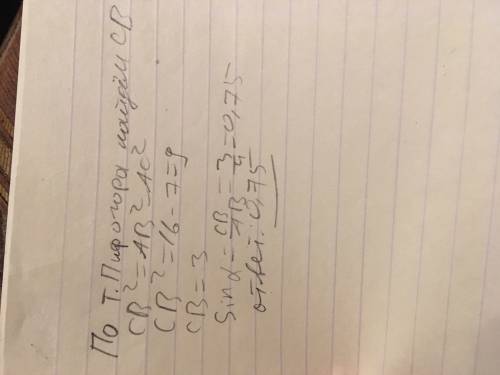 По т. Пифагора найдём CB
CB² = AB² - AC²
CB² = 16 - 7 = 9
CB = 3
Sin α = CB/AB = 3/4 = 0,75
ответ: 0,75